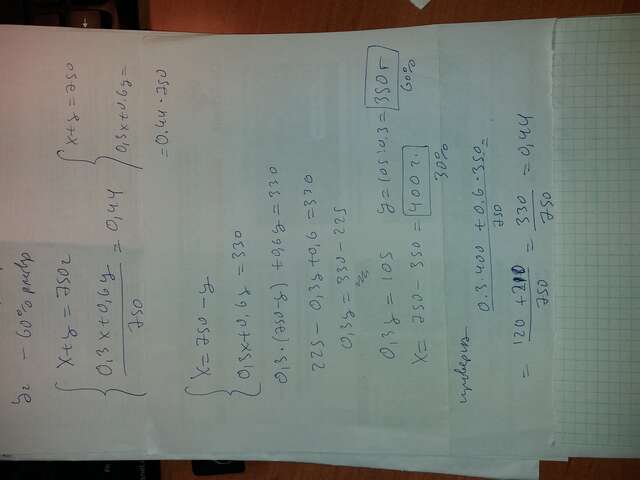 y г - 60% раствор
x+y = 750г
0,3x+0,6y / 750 = 0,44
x+y = 750
0,3x+0.6y=
=0.44·750
x= 750-y
0,3x+0,6y = 330
0,3·(750-y) +0,6y = 330
225- 0,3y+0,6 =330
0,3y = 330-225
0,3y = 105 y=105:0.3= 350г
60%
x= 750- 350 = 400г.
30%
проверка
0.3·400 +0.6·350 / 750 =
= 120 +210 / 750 = 330 / 750 = 0,44